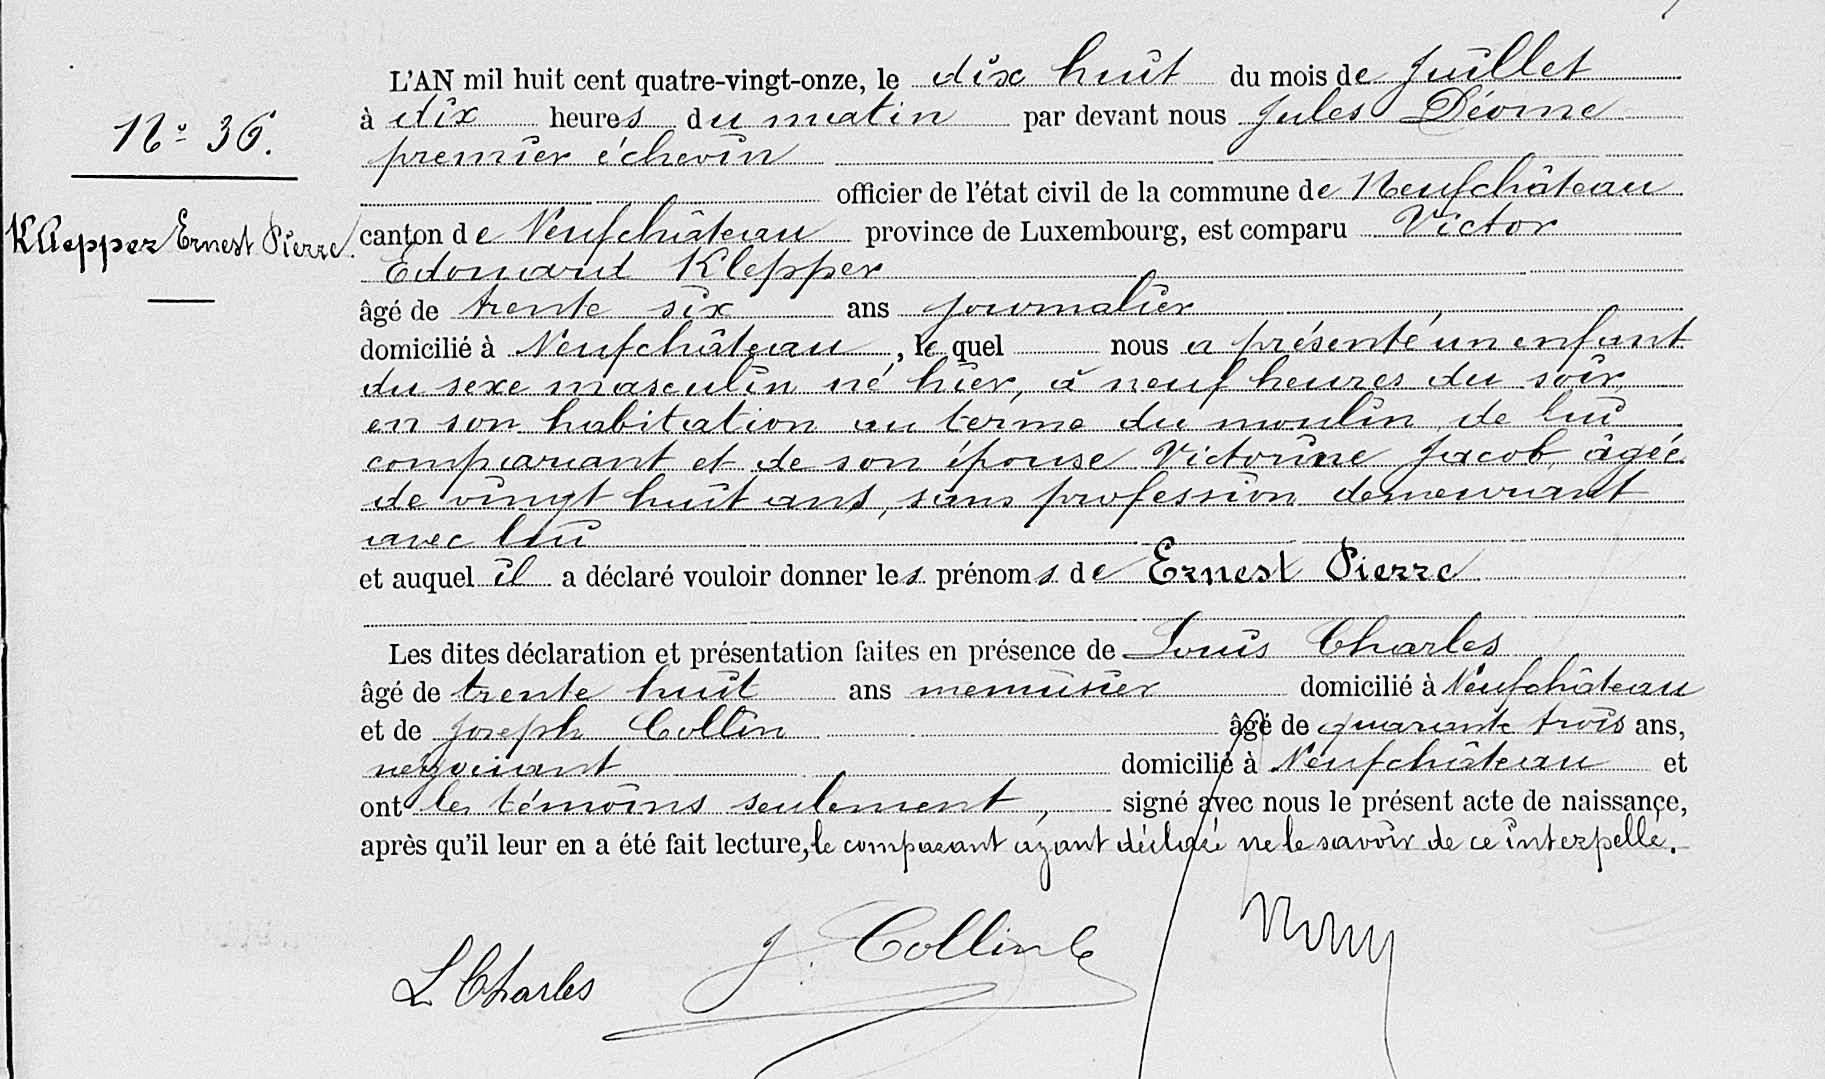 L'AN mil huit cent quatre-vingt-onze, le dix huit du mois de Juillet
à dix heures du matin par devant nous Jules Déome
N° 36.
premier échevin
officier de l'état civil de la commune de Neufchâteau
Klepper Ernest Pierre.
canton de Neufchâteau province de Luxembourg, est comparu Victor
Edouard Klepper
âgé de trente six ans journalier
domicilié à Neufchâteau, le quel nous a présenté un enfant
du sexe masculin né hier, à neuf heures du soir,
en son habitation au terme du moulin, de lui
comparant et de son épouse Victorine Jacob, âgée
de vingt huit ans, sans profession demeurant
avec lui
et auquel il a déclaré vouloir donner les prénoms de Ernest Pierre
Les dites déclaration et présentation faites en présence de Louis Charles
âgé de trente huit ans menuisier domicilié à Neufchâteau
et de Joseph Collin âgé de quarante trois ans,
négociant domicilié à Neufchâteau et
ont les témoins seulement, signé avec nous le présent acte de naissance,
après qu'il leur en a été fait lecture, le comparant ayant déclaré ne le savoir de ce interpellé.
L Charles
J. Collin